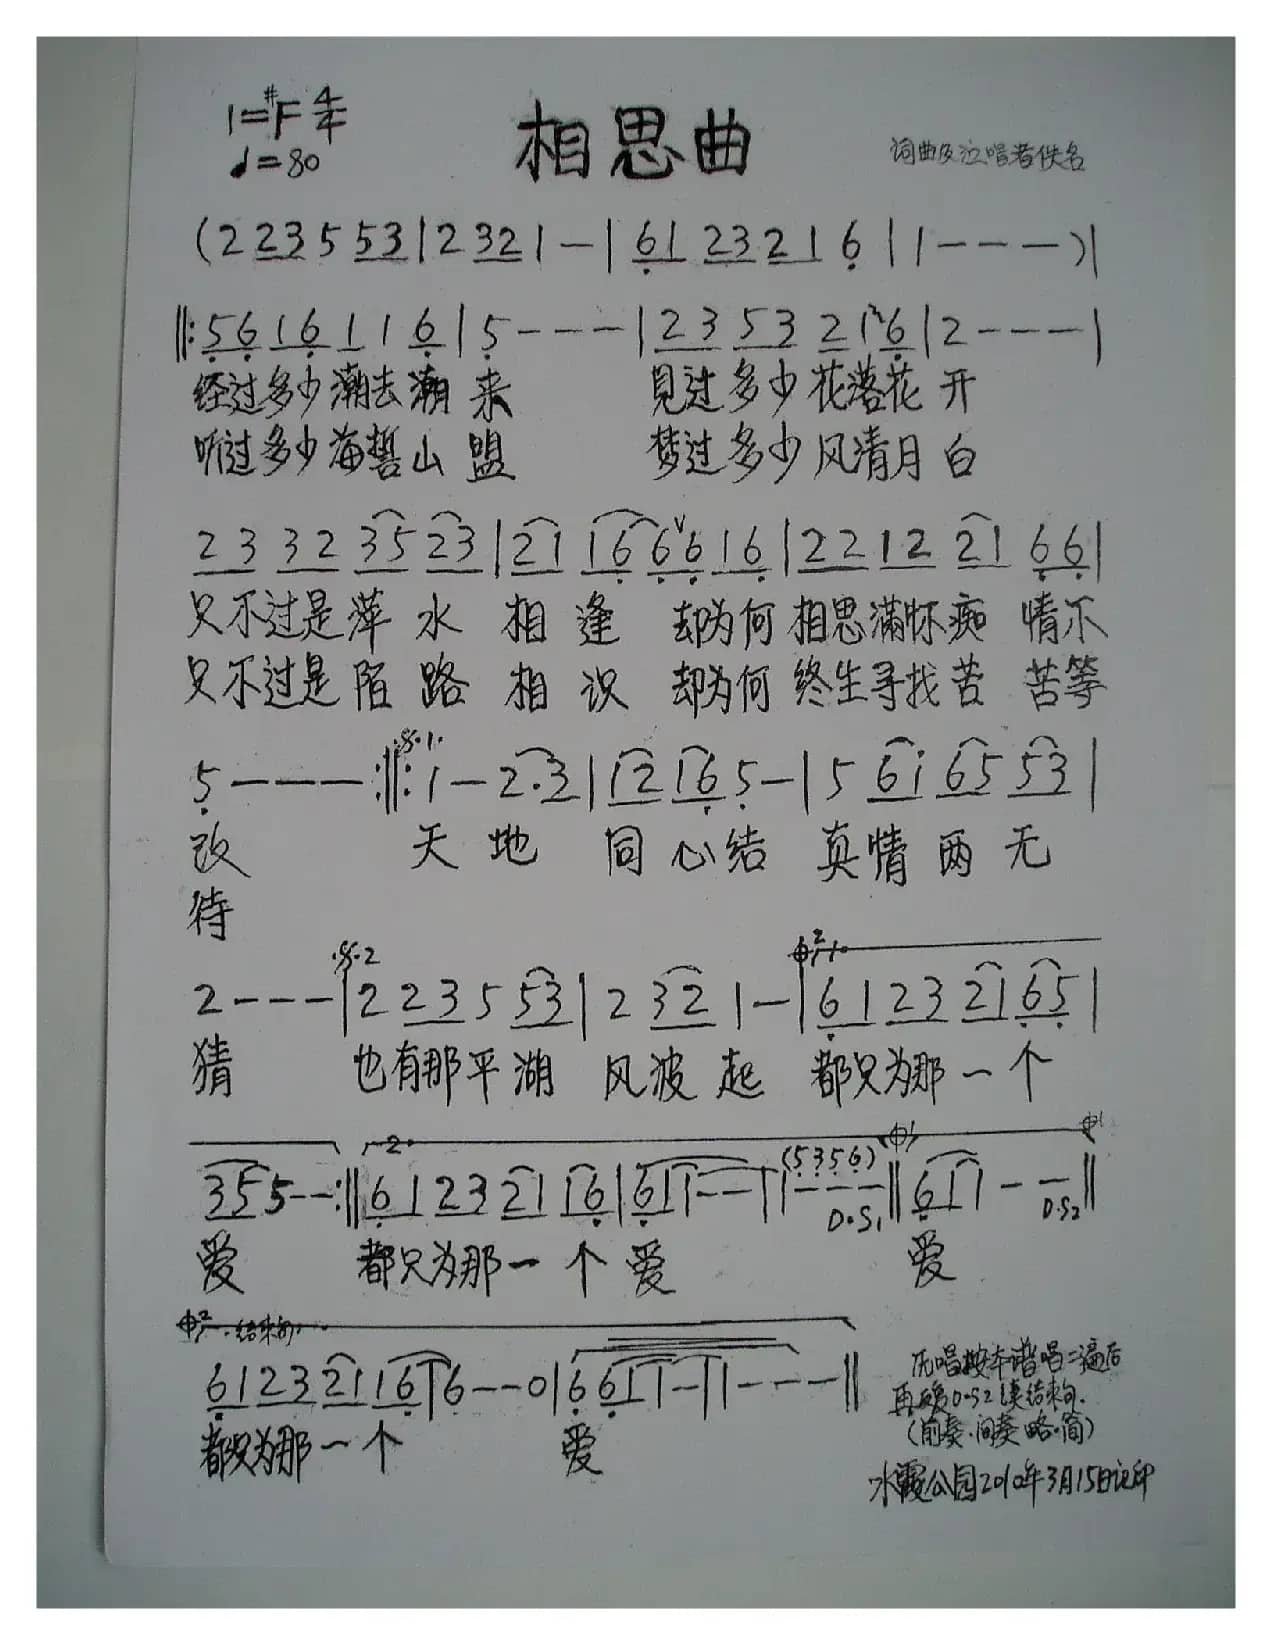 1=#F 4/4
♩=80
相思曲
词曲及泣唱者佚名
(2 23 5 53|2 32 1—|61 23 21 6|1———)|
‖:56 16 1 1 6|5———|23 53 21 6|2———|
经过多少潮去潮来 見过多少花落花开
听过多少海誓山盟 梦过多少风清月白
23 32 35 23|21 16 6 6 16|22 12 21 66|
只不过是萍水相逢 却为何相思满怀痴情不
只不过是陌路相识 却为何终生寻找苦苦等
5———:‖:1—2·3|12 16 5—|5 61 65 53|
改 天地同心结 真情两无
待
2———|2 23 5 53|2 32 1—|61 23 21 65|
猜 也有那平湖风波起 都只为那一个
35 5——:‖61 23 21 16|61 1——|1———‖61 1——‖
(5356) D.S1 D.S2
爱 都只为那一个爱 爱
结束句
61 23 21 16|6——0|6 61 1—|1———‖
都只为那一个 爱
本谱唱二遍后
再 D.S2 结束句.
(前奏.间奏略.简)
水霞公园2010年3月15日记印